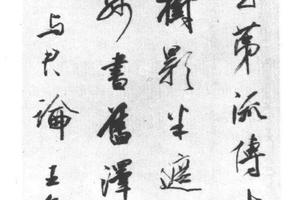 苐流傳
樹影半遮
書舊澤
与君論王